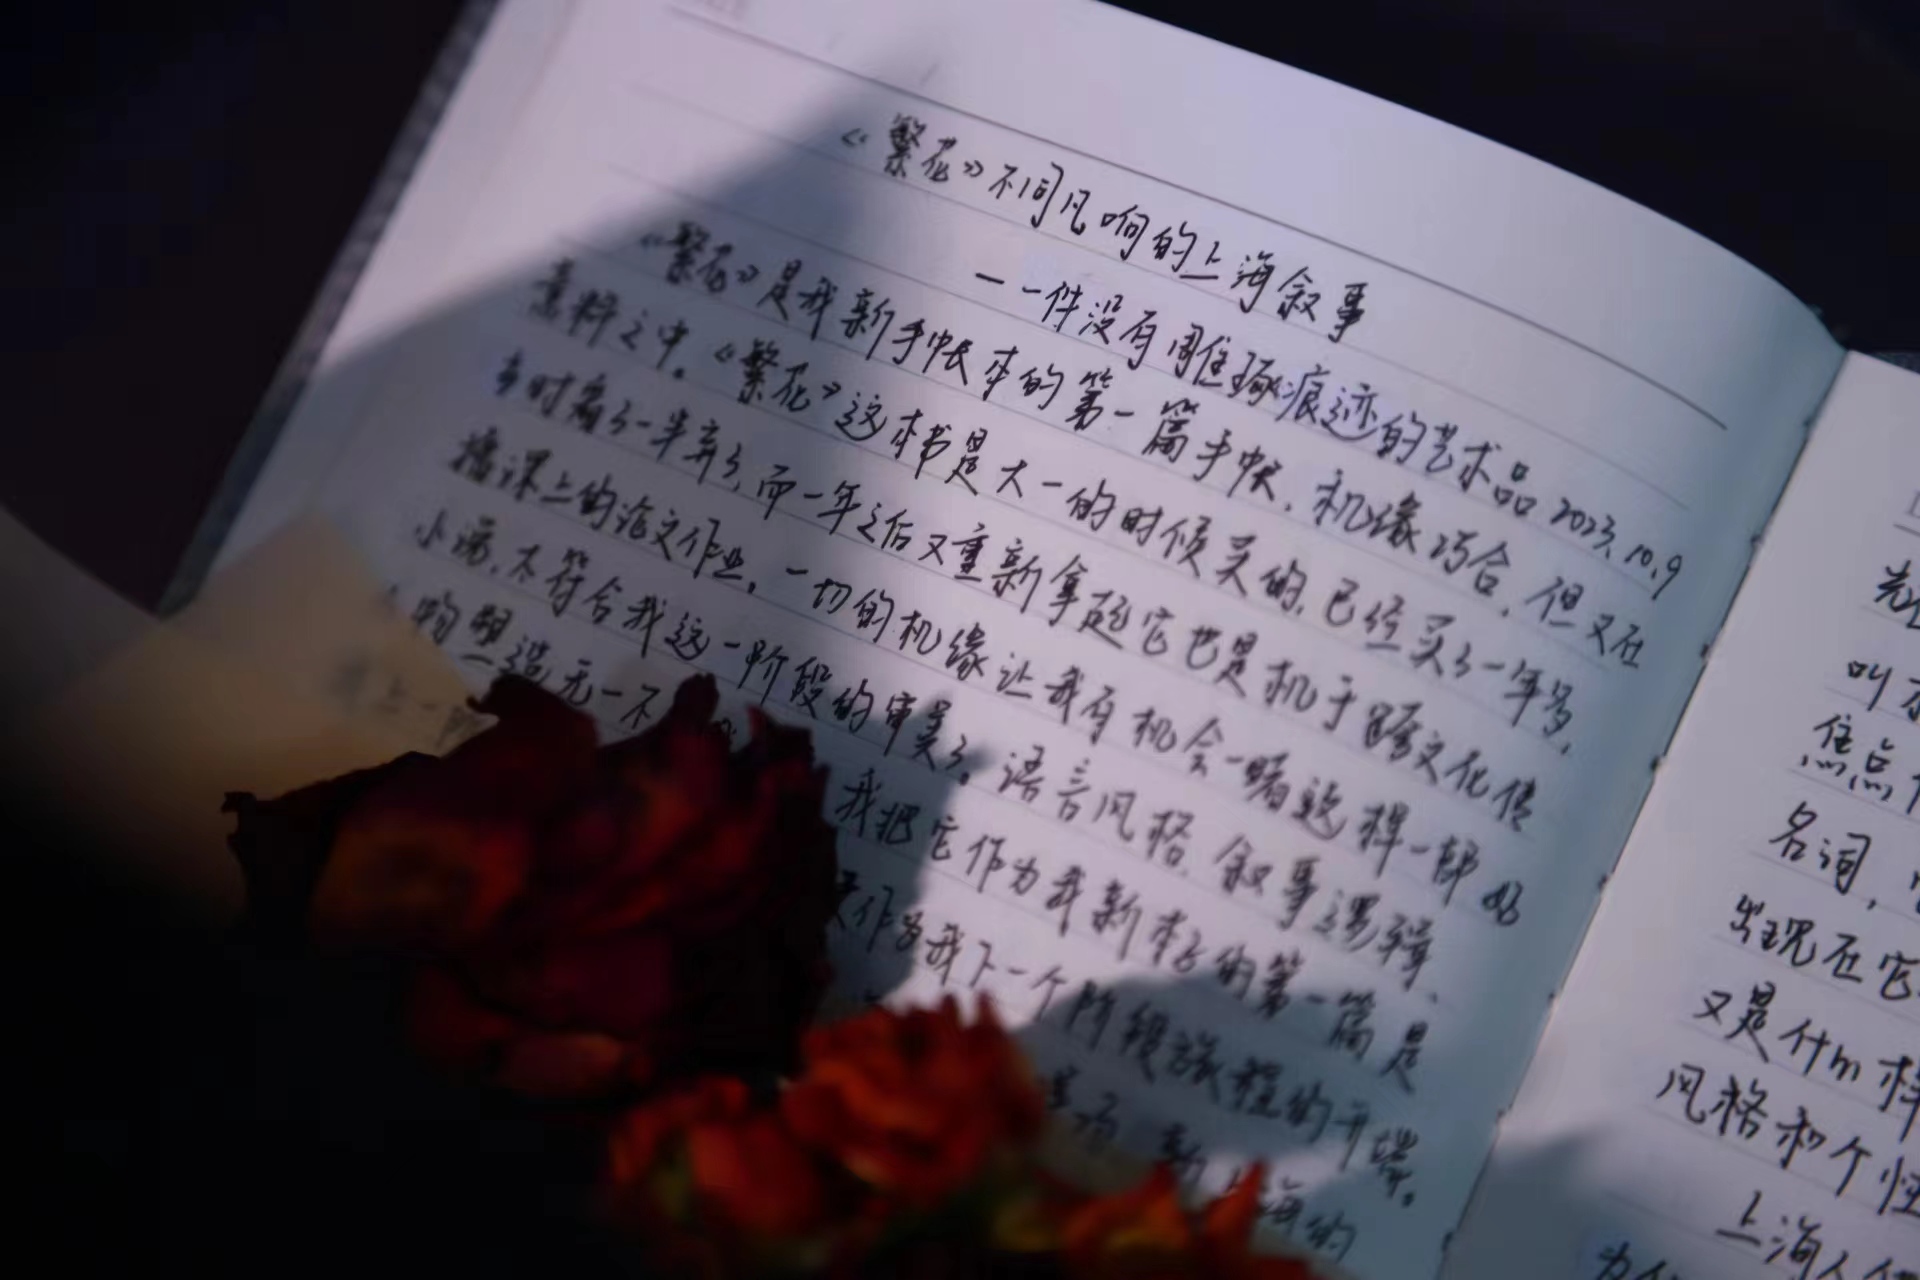 《繁花》不同凡响的上海叙事
一一件没有雕琢痕迹的艺术品 2023.10.9
《繁花》是我新手帐本的第一篇手帐，机缘巧合，但又在
意料之中。《繁花》这本书是大一的时候买的，已经买了一年多，
当时看了一半弃了，而一年之后又重新拿起它也是机于跨文化传
播课上的论文作业，一切的机缘让我有机会一睹这样一部好
小说，太符合我这一阶段的审美了。语言风格、叙事逻辑、
人物塑造无一不 我把它作为我新本子的第一篇是
作为我下一个阶段旅程的开端。
海的
叫
焦点
名词，
出现在它
又是什m样
风格和个性
上海人